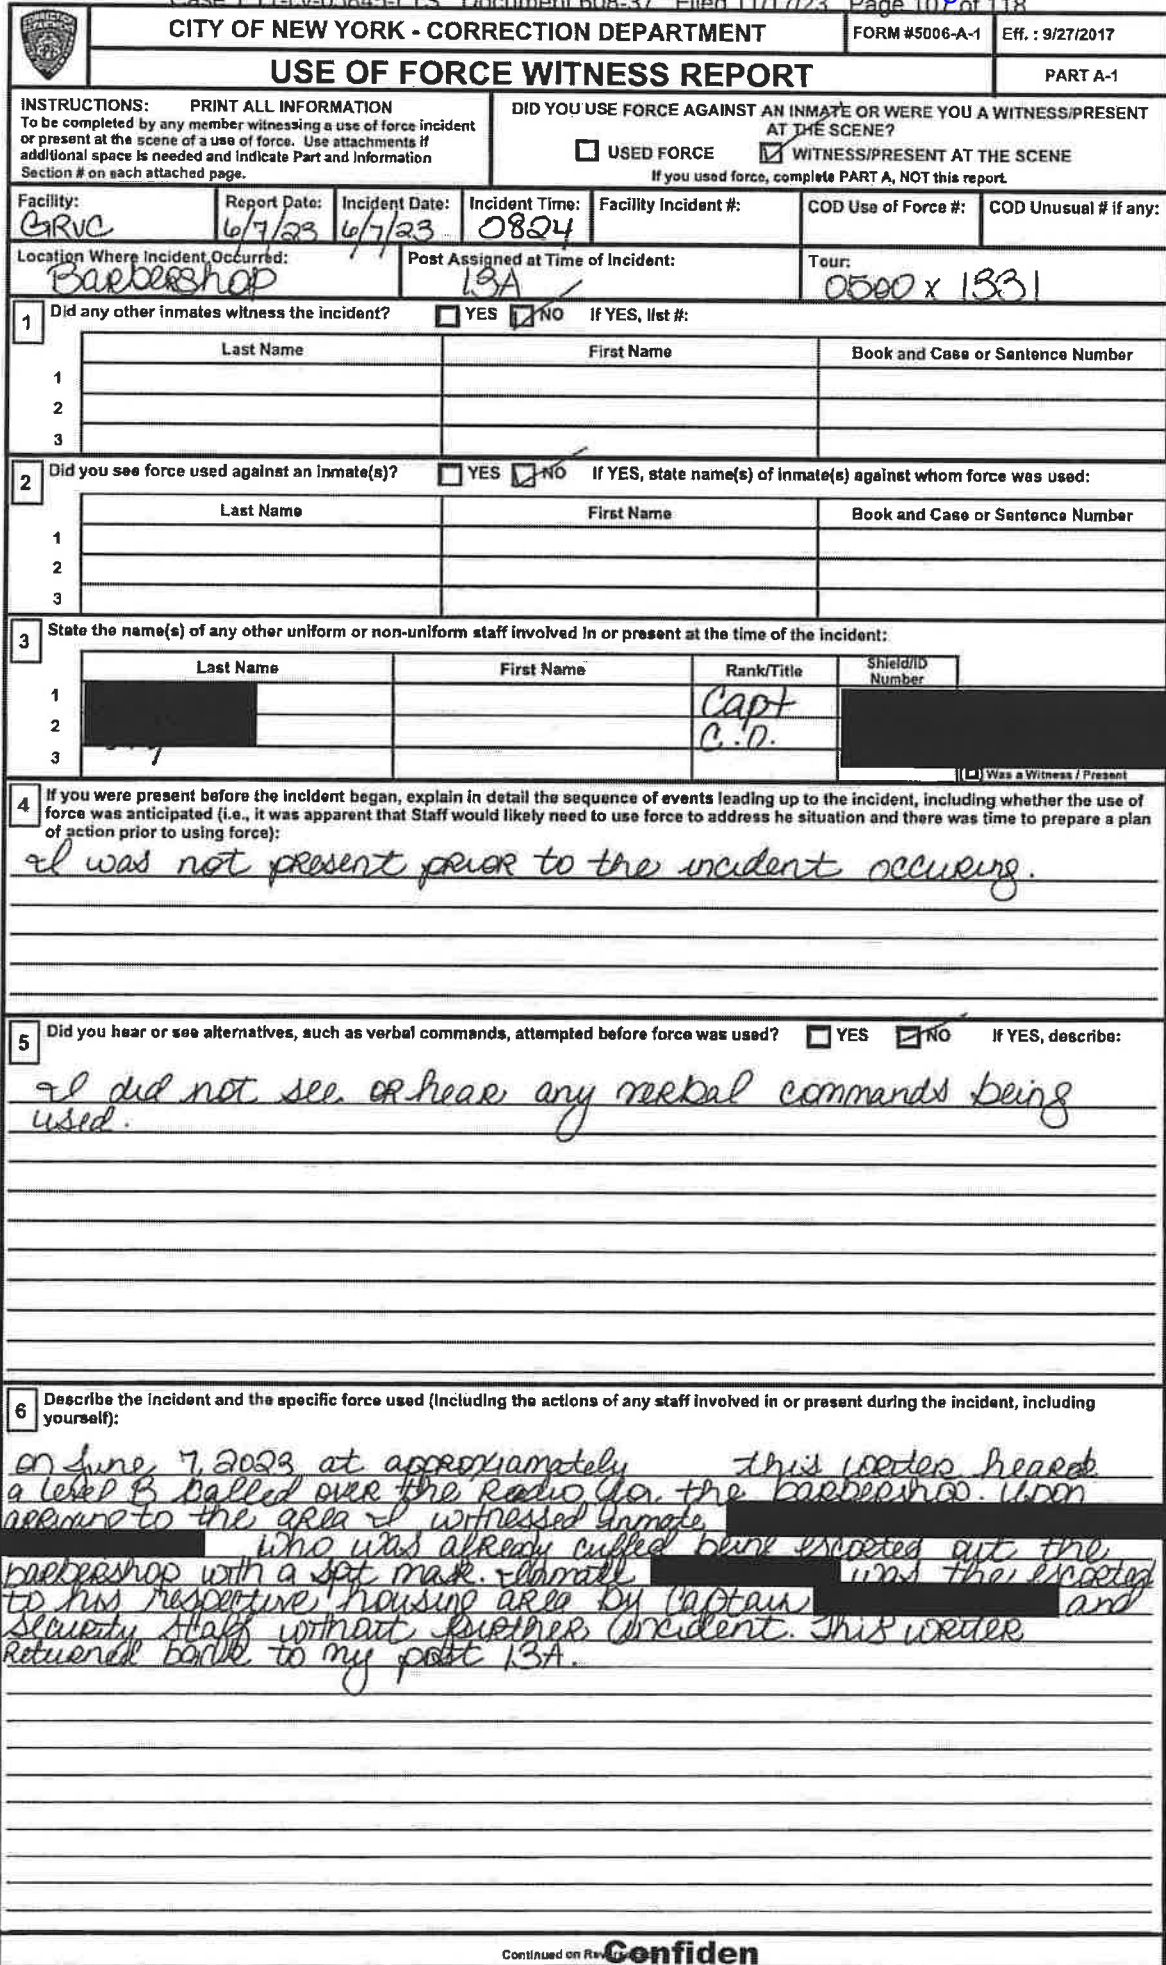 Document 608-37 Filed 11/17/23 Page 107 of 118
CITY OF NEW YORK - CORRECTION DEPARTMENT
FORM #5006-A-1
Eff. : 9/27/2017
USE OF FORCE WITNESS REPORT
PART A-1
INSTRUCTIONS: PRINT ALL INFORMATION
To be completed by any member witnessing a use of force incident
or present at the scene of a use of force. Use attachments if
additional space is needed and indicate Part and Information
Section # on each attached page.
DID YOU USE FORCE AGAINST AN INMATE OR WERE YOU A WITNESS/PRESENT
AT THE SCENE?
USED FORCE
WITNESS/PRESENT AT THE SCENE
If you used force, complete PART A, NOT this report.
Facility: Report Date: Incident Date: Incident Time: Facility Incident #: COD Use of Force #: COD Unusual # if any:
GRVC 6/7/23 6/7/23 0824
Location Where Incident Occurred: Post Assigned at Time of Incident: Tour:
Barbershop 13A 0500 x 1331
1 Did any other inmates witness the incident? YES NO If YES, list #:
Last Name First Name Book and Case or Sentence Number
1
2
3
2 Did you see force used against an inmate(s)? YES NO If YES, state name(s) of inmate(s) against whom force was used:
Last Name First Name Book and Case or Sentence Number
1
2
3
3 State the name(s) of any other uniform or non-uniform staff involved in or present at the time of the incident:
Last Name First Name Rank/Title Shield/ID
Number
1 Capt
2 C.O.
3
Was a Witness / Present
4 If you were present before the incident began, explain in detail the sequence of events leading up to the incident, including whether the use of
force was anticipated (i.e., it was apparent that Staff would likely need to use force to address he situation and there was time to prepare a plan
of action prior to using force):
I was not present prior to the incident occuring.
5 Did you hear or see alternatives, such as verbal commands, attempted before force was used? YES NO If YES, describe:
I did not see or hear any verbal commands being
used.
6 Describe the incident and the specific force used (including the actions of any staff involved in or present during the incident, including
yourself):
on June 7, 2023 at approxiamately this writer heard
a level B called over the Radio for the barbershop. Upon
arriving to the area I witnessed Inmate
who was already cuffed being escorted out the
barbershop with a spit mask. Inmate was the escorted
to his respective housing area by Captain and
security staff without further incident. This writer
Returned back to my post 13A.
Continued on
Confiden